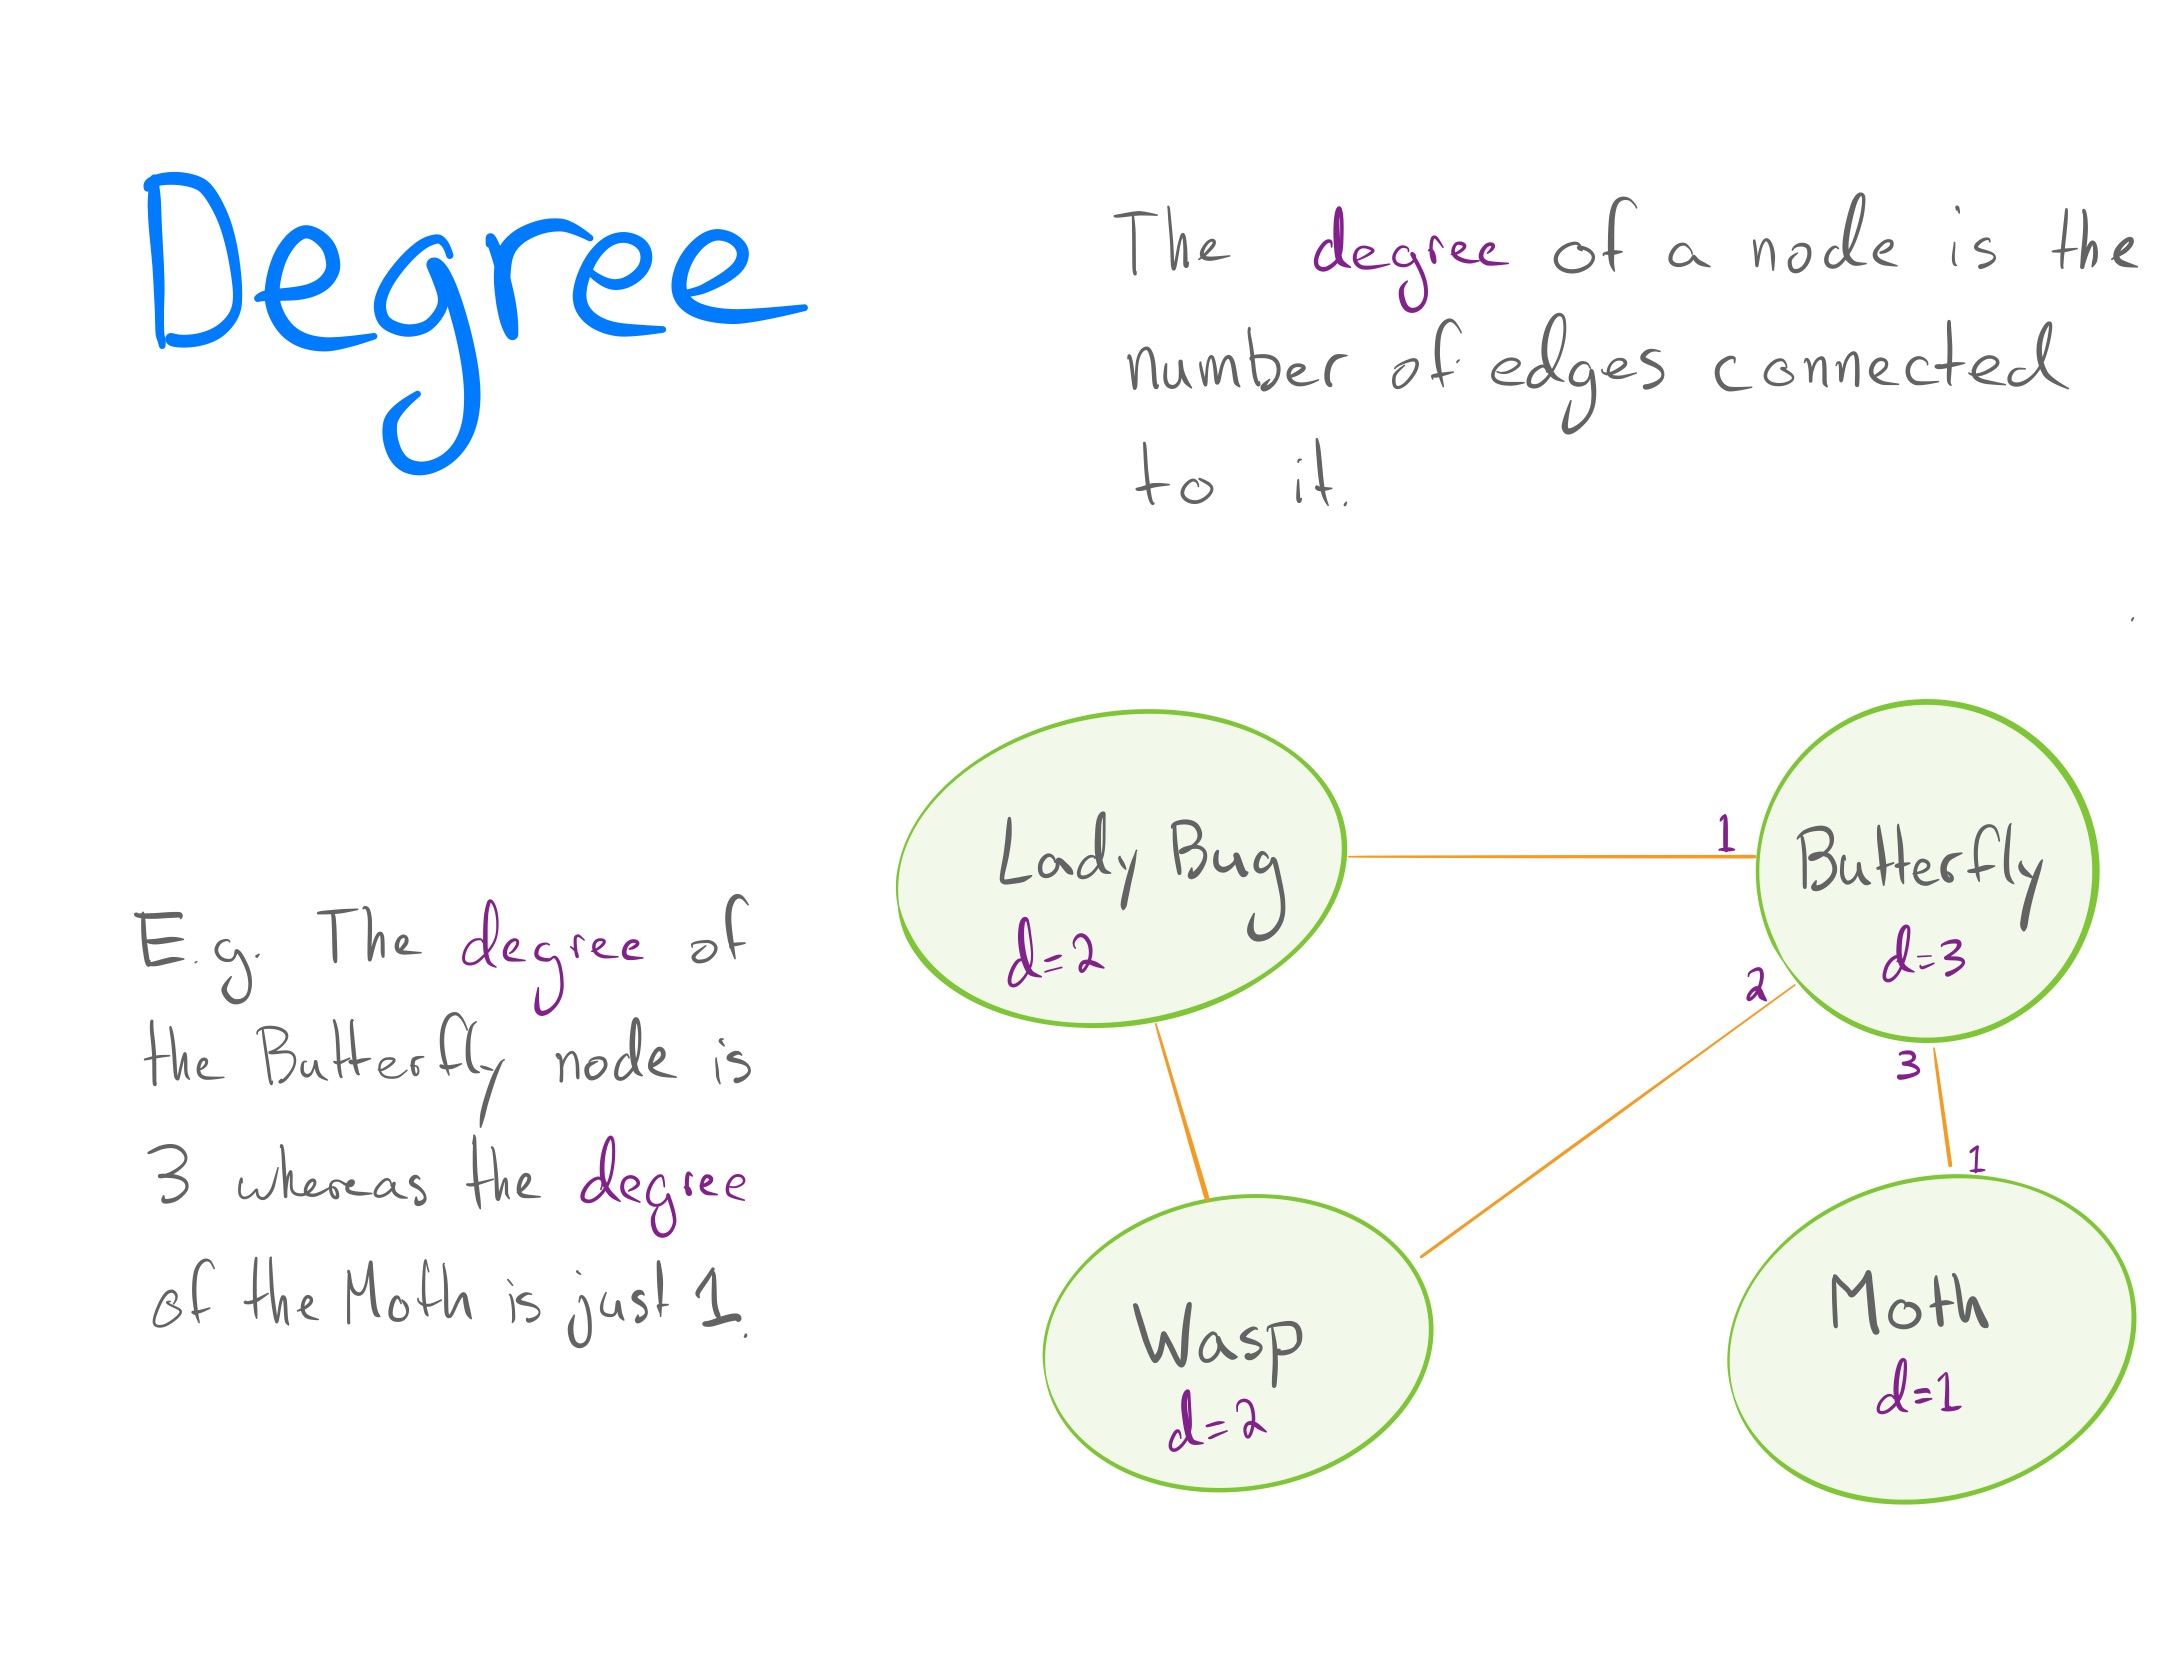 Degree
The degree of a node is the
number of edges connected
to it.
E.g. The degree of
the Butterfly node is
3 whereas the degree
of the Moth is just 1.
Lady Bug
d=2
1
Butterfly
d=3
2
3
1
Wasp
d=2
Moth
d=1